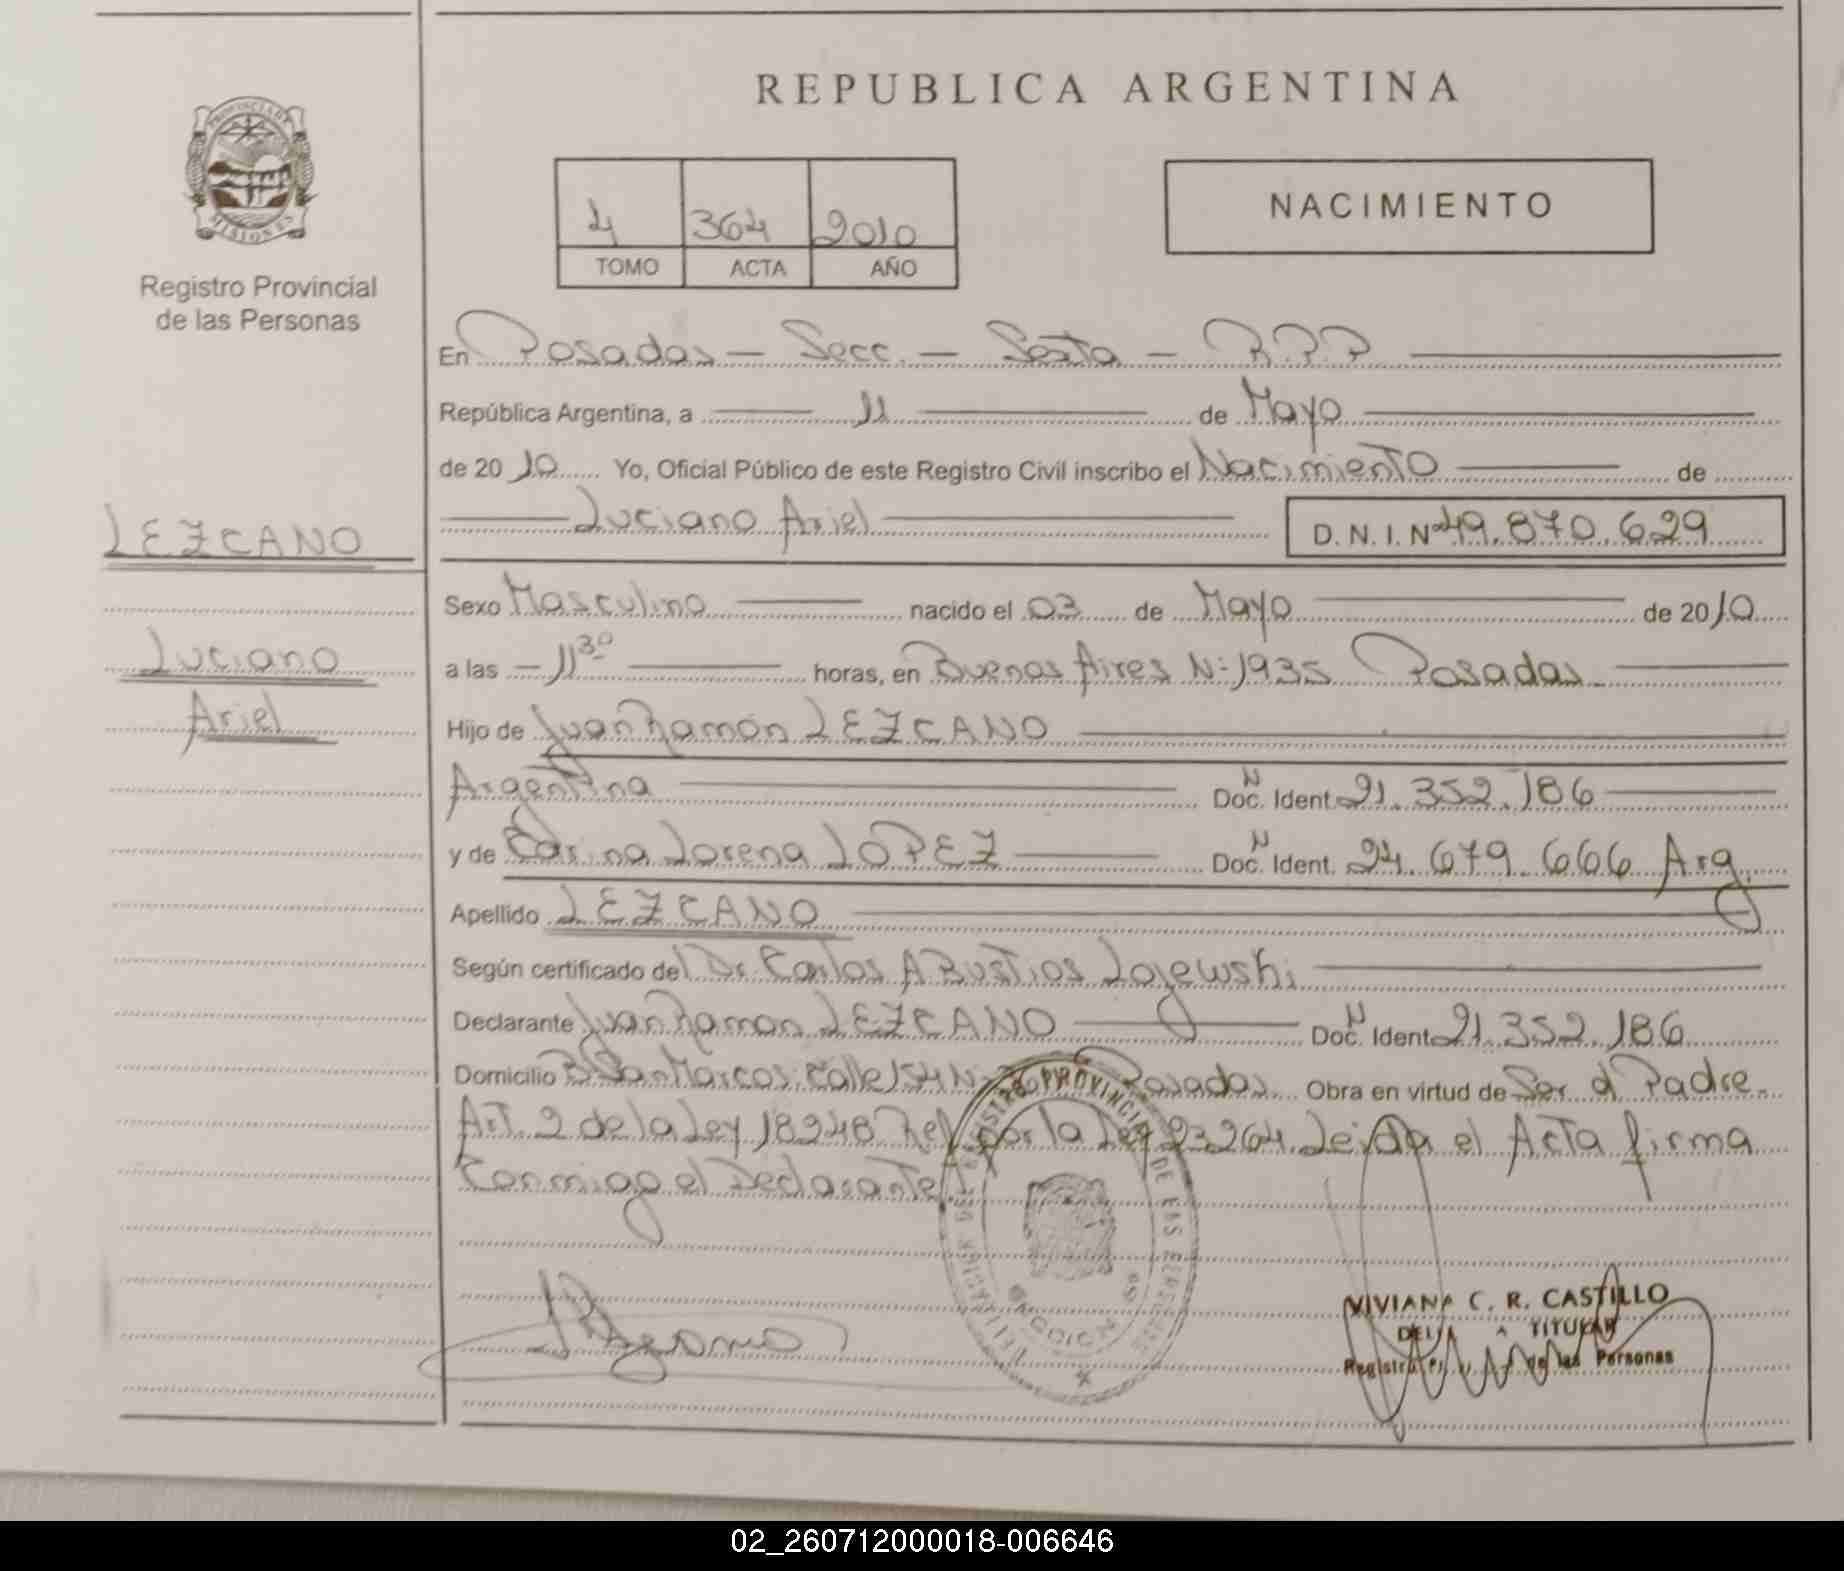 REPUBLICA ARGENTINA
PROVINCIA DE MISIONES
Registro Provincial
de las Personas
4 364 2010
TOMO ACTA AÑO
NACIMIENTO
En Posadas — Secc. — Sexta — R.P.P.
República Argentina, a 11 de Mayo
de 2010 Yo, Oficial Público de este Registro Civil inscribo el Nacimiento de
Luciano Ariel D.N.I. Nº 49.870.629
LEZCANO
Luciano
Ariel
Sexo Masculino nacido el 03 de Mayo de 2010
a las 11 30 horas, en Buenos Aires Nº 1935 Posadas
Hijo de Juan Ramón LEZCANO
Argentina Doc. Ident. 21.352.186
y de Carina Lorena LOPEZ Doc. Ident. 24.679.666 Arg.
Apellido LEZCANO
Según certificado del Dr Carlos A Bustios
Declarante Juan Ramon LEZCANO Doc. Ident. 21.352.186
Domicilio San Marcos Calle Posadas Obra en virtud de Ser el Padre.
Art. 2 de la Ley 18248 Ref por la Ley 23264. Leida el Acta firma
Conmigo el Declarante
VIVIANA C. R. CASTILLO
TITULAR
de las Personas
02_260712000018-006646